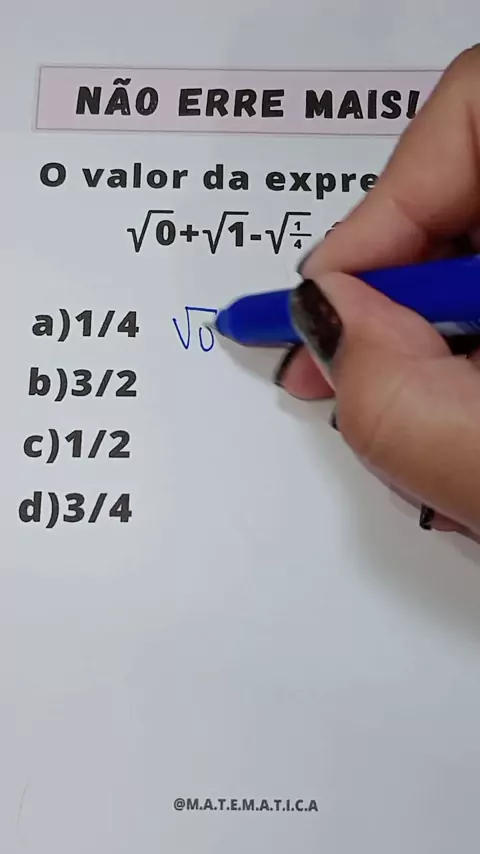 NÃO ERRE MAIS!
O valor da expre
√0+√1-√1/4
a)1/4 √0
b)3/2
c)1/2
d)3/4
@M.A.T.E.M.A.T.I.C.A